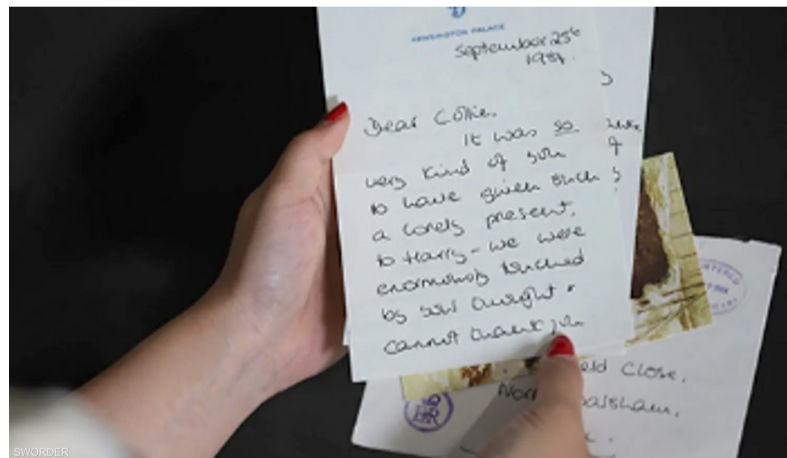 KENSINGTON PALACE
September 25th
1984.
Dear Collie,
It was so
very kind of you
to have given such
a lovely present,
to Harry - we were
enormously touched
by your thought &
cannot thank you
eld Close,
Nor alsham,
SWORDER